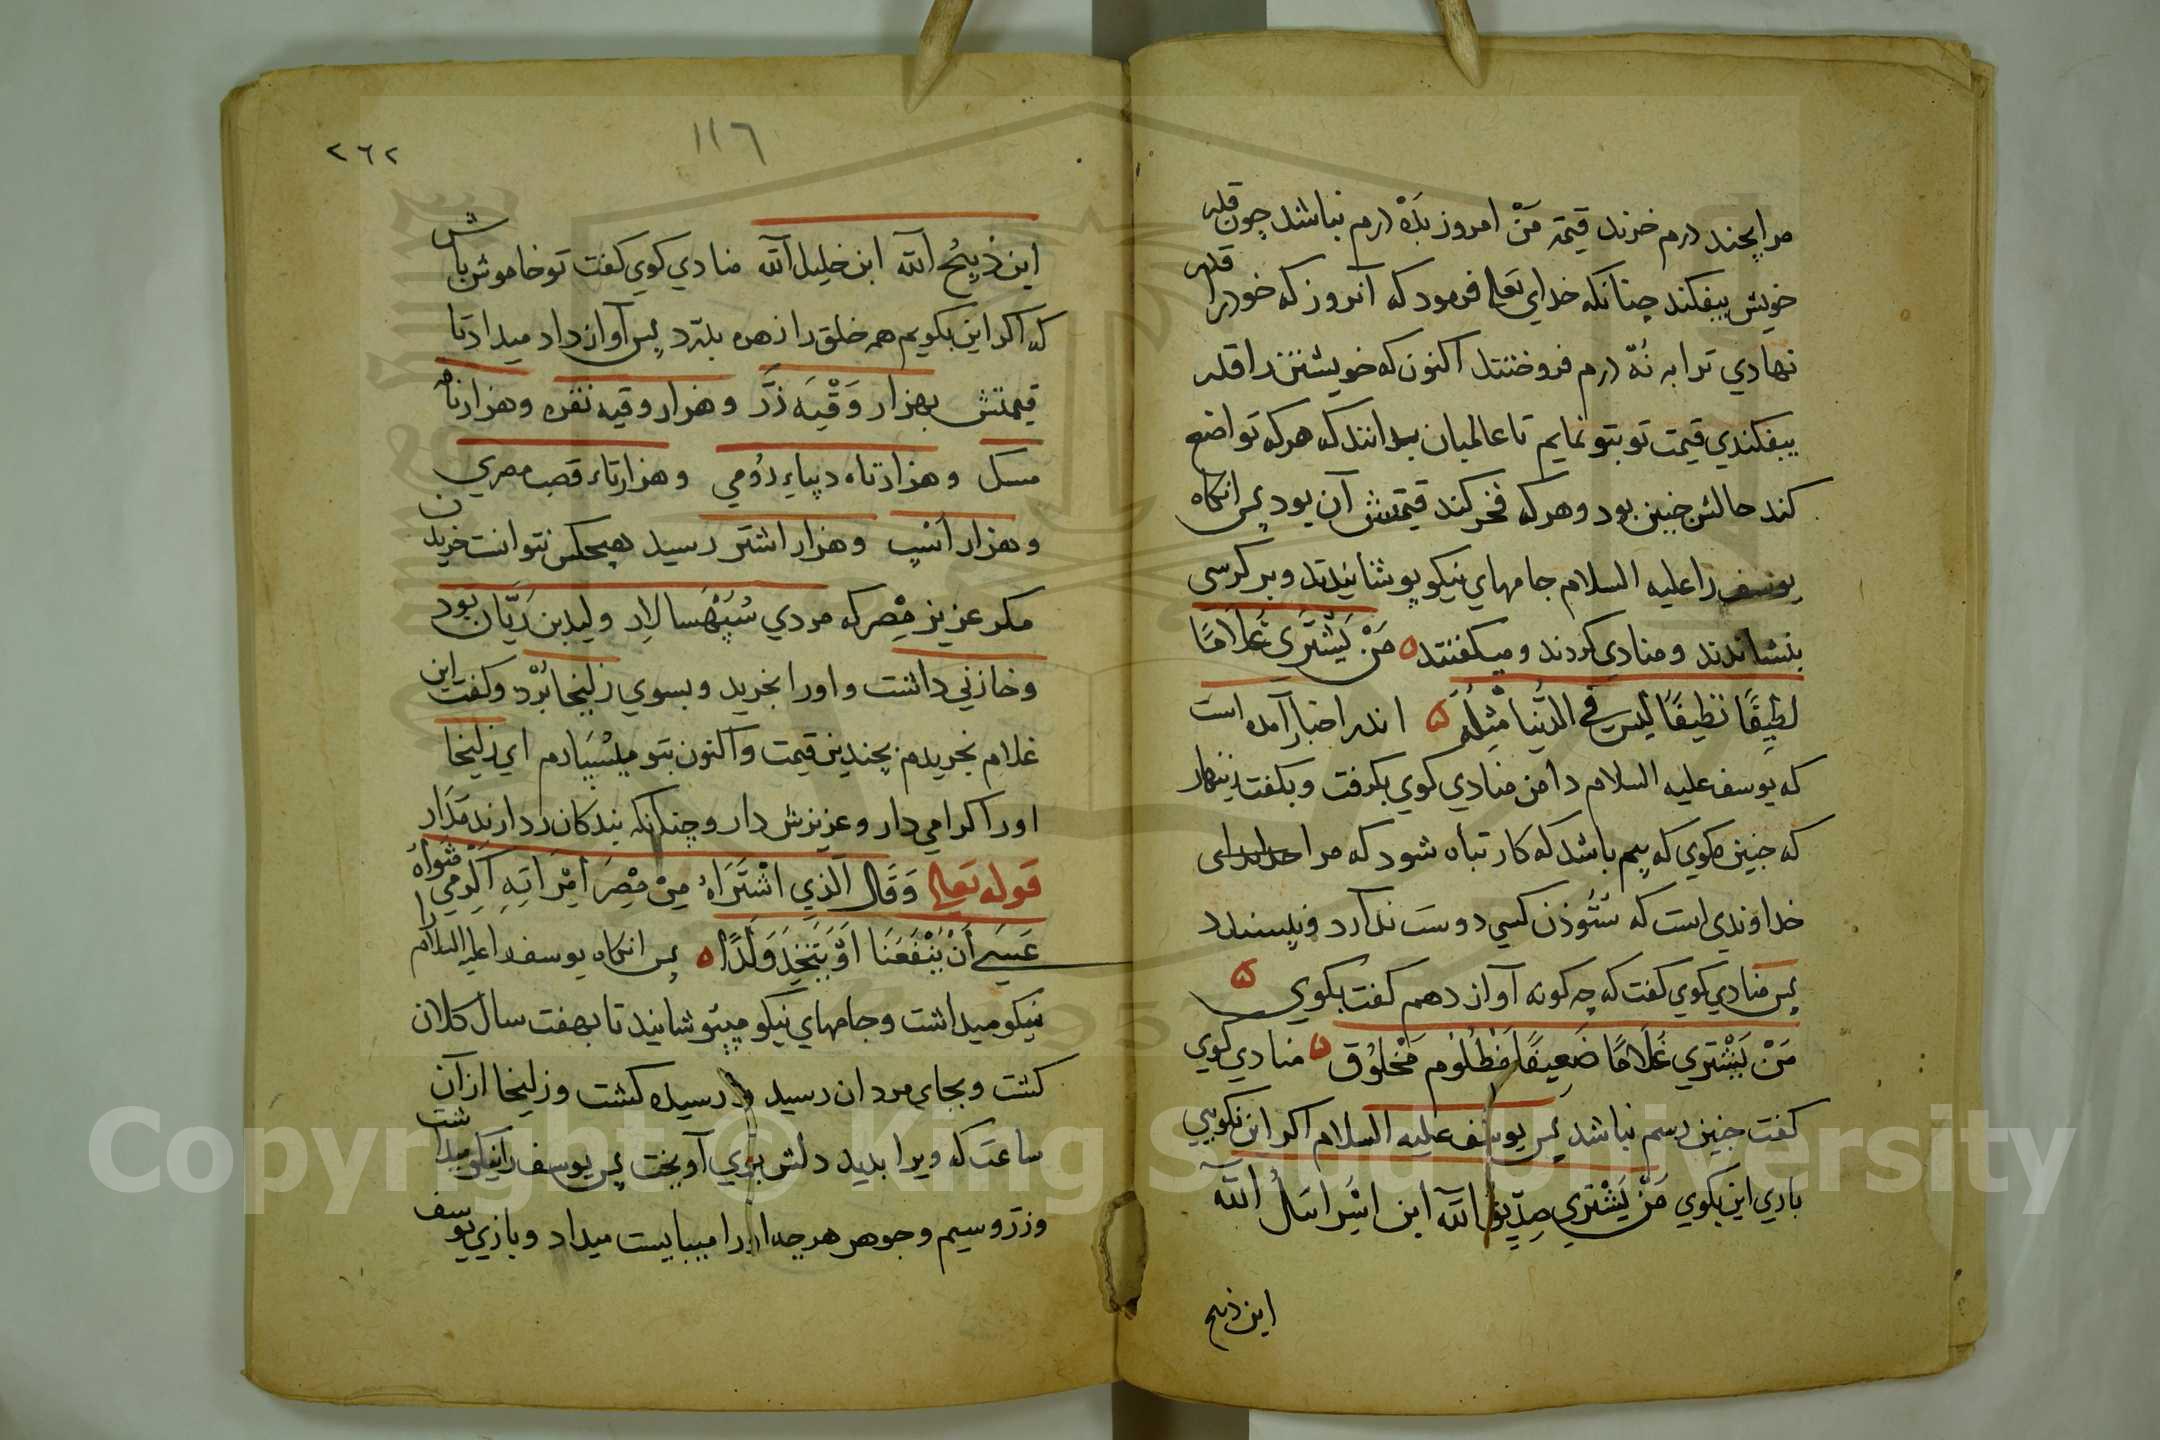 مرا بچند درم خرند قیمة مَنْ امروز بدَه درم نباشد چون قدر
خویش بیفکند چنانکه خدای تعالی فرمود که آنروز که خود را قدر
نهادي ترا به نُه درم فروختند اکنون که خویشتن را قدر
بیفکندي قیمت تو بتو نمایم تا عالمیان بدانند که هرکه تواضع
کند حالش چنین بود و هرکه فخر کند قیمتش آن بود پس انکاه
یوسف را علیه السلام جامهاي نیکو پوشانیدند و بر کرسی
بنشاندند و منادي کردند و میکفتند ه مَنْ یَشْتَرِي غُلَامًا
لَطِیفًا نَظِیفًا لَیْسَ فِی الدُّنیا مِثْلُهُ ه اندر اخبار آمده است
که یوسف علیه السلام دامن منادي کوي بکرفت و بکفت زینهار
که چنین مکوي که بیم باشد که کار تباه شود که مرا
خداوندي است که سُتُوذن کسي دوست ندارد و نپسندد
پس منادي کوي کفت که چه کونه آواز دهم کفت بکوي ه
مَنْ یَشْتَرِي غُلَامًا ضَعِیفًا مَظْلُوم مَخْلُوق ه منادي کوي
کفت چنین رسم نباشد پس یوسف علیه السلام اکر این نکویي
باري این بکوي مَنْ یَشْتَرِي صِدِّیقُ الله ابن اسْرِاسَلُ الله
این ذبیح
٢٦٢
١١٦
این ذَبِیْحُ الله ابن خلیل الله منادي کوي کفت تو خاموش باش
که اکر این بکویم همه خلق را زهره بدرّد پس آواز داد میداد تا
قیمتش بهزار وَقْیَه زَر و هزار وقیه نقره و هزار نافه
مسک و هزار تاه دیباءِ رُومي و هزار تاء قصب مصري
و هزار اسْپ و هزار اشتر رسید هیچکس نتوانست خریدن
مکر عزیز مِصر که مردي سُپَهْسالارِ ولید بن رَیَّان بود
و خازني داشت و اورا بخرید و بسوي زلیخا بُرْد و کفت این
غلام بخریدم بچندین قیمت و اکنون بتو مِیسْپارم اي زلیخا
اورا کرامي دار و عزیزش دار و چنانکه بندکان را دارند مَدَار
قوله تعالی وَقَالَ الَّذِي اشْتَرَاهُ مِنْ مِصْرَ لِامْرَاَتِهِ اَکْرِمِي مَثْوَاهُ
عَسَي أَنْ یَنْفَعَنَا اَوْ نَتَّخِذَهُ وَلَدًا ه پس انکاه یوسف را علیه السلام
نیکو میداشت و جامهاي نیکو میپوشانید تا بهفت سال کلان
کشت و بجاي مردان رسید و رسیده کشت و زلیخا از آن
ساعت که ویرا بدید دلش بروي آویخت پس یوسف را نیکو میداشت
و زر و سیم و جوهر هرچه اورا میبایست میداد و بازي یوسف
Copyright © King Saud University